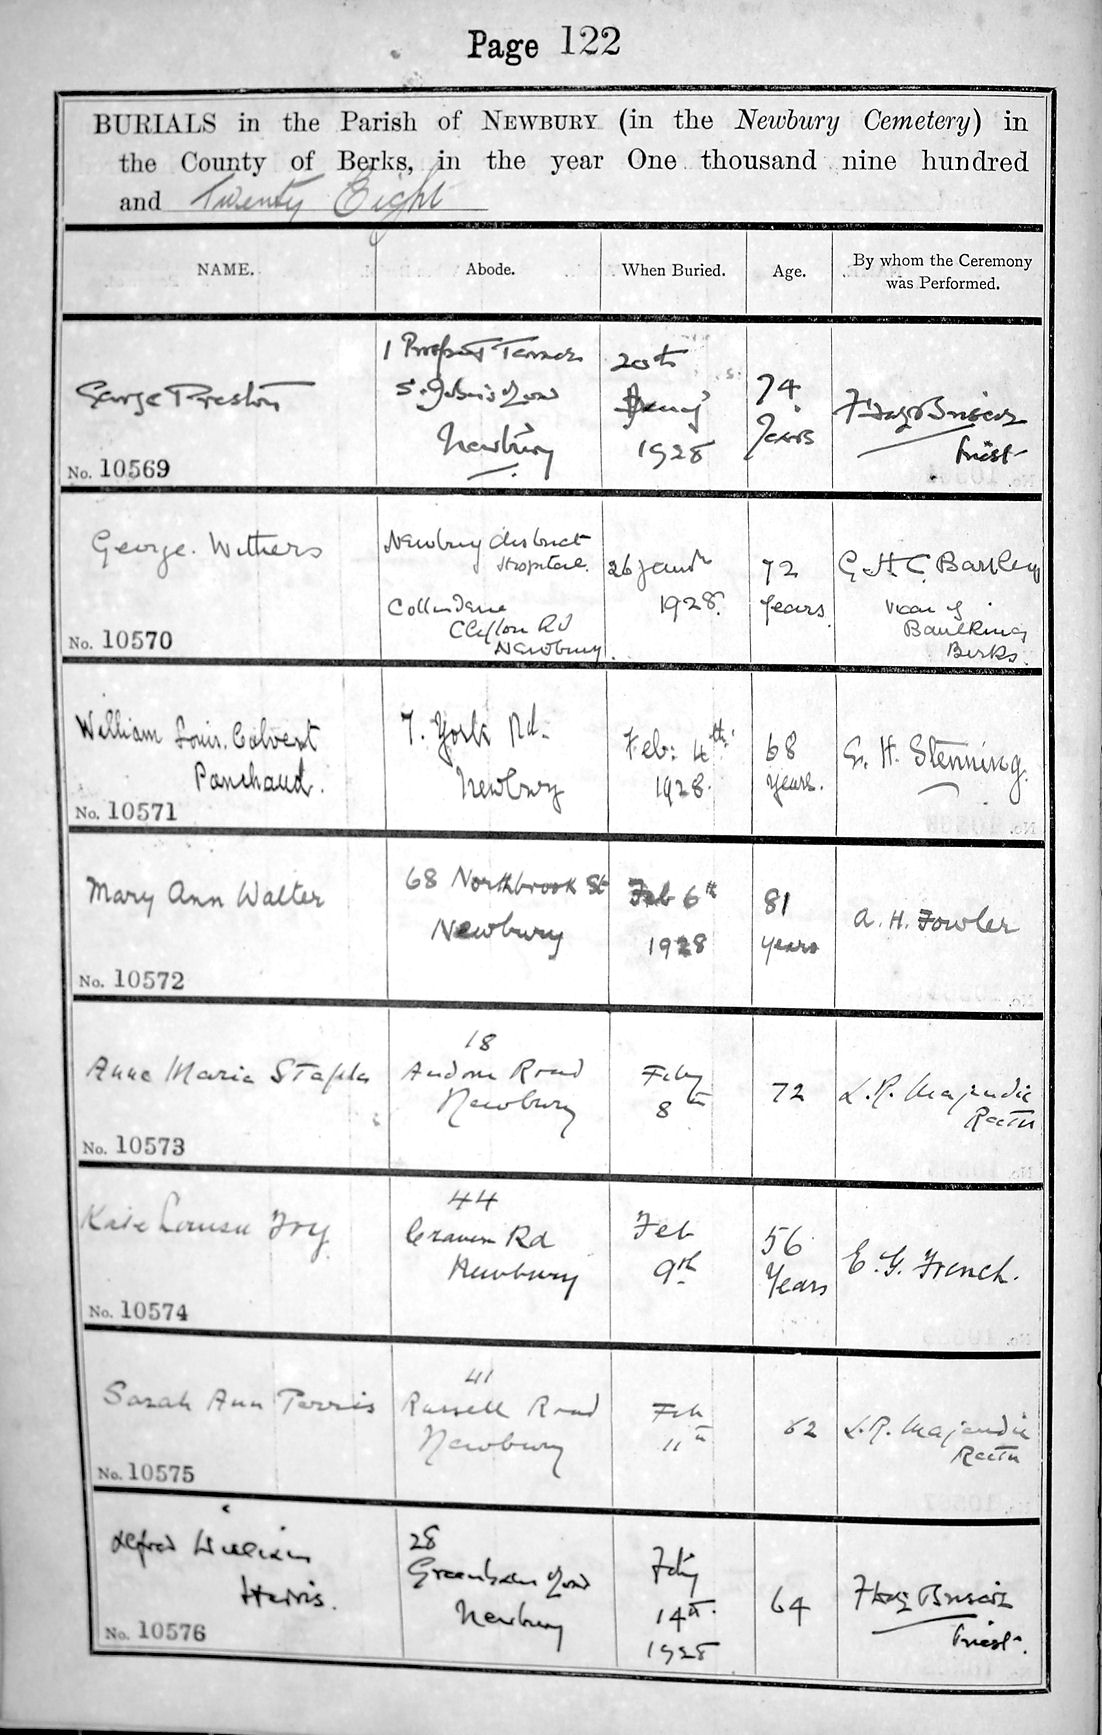 Page 122
BURIALS in the Parish of NEWBURY (in the Newbury Cemetery) in
the County of Berks, in the year One thousand nine hundred
and Twenty Eight
NAME.
Abode.
When Buried.
Age.
By whom the Ceremony
was Performed.
George Preston
No. 10569
1 Prospect Terrace
St. John's Road
Newbury
20th
1928
74
Years
Priest
George. Withers
No. 10570
Newbury District
Hospital.
Clifton Rd
Newbury.
26
1928.
72
Years.
G. H. C. Bartley
Vicar of
Baulking
Berks.
William Louis. Calvert
Panchaud.
No. 10571
7. York Rd.
Newbury
Feb: 4th.
1928.
68
years.
S. H. Stenning.
Mary Ann Walter
No. 10572
68 Northbrook St
Newbury
Feb 6th
1928
81
years
A. H. Fowler
Anne Maria Staples
No. 10573
18
Andover Road
Newbury
Feby
8th
72
L. R. Majendie
Rector
Kate Louisa Fry
No. 10574
44
Craven Rd
Newbury
Feb
9th
56
Years
E. G. French.
Sarah Ann Perris
No. 10575
41
Russell Road
Newbury
Feb
11th
62
L. R. Majendie
Rector
Alfred William
Harris.
No. 10576
28
Greenham Road
Newbury
Feby
14th.
1928
64
Priest.